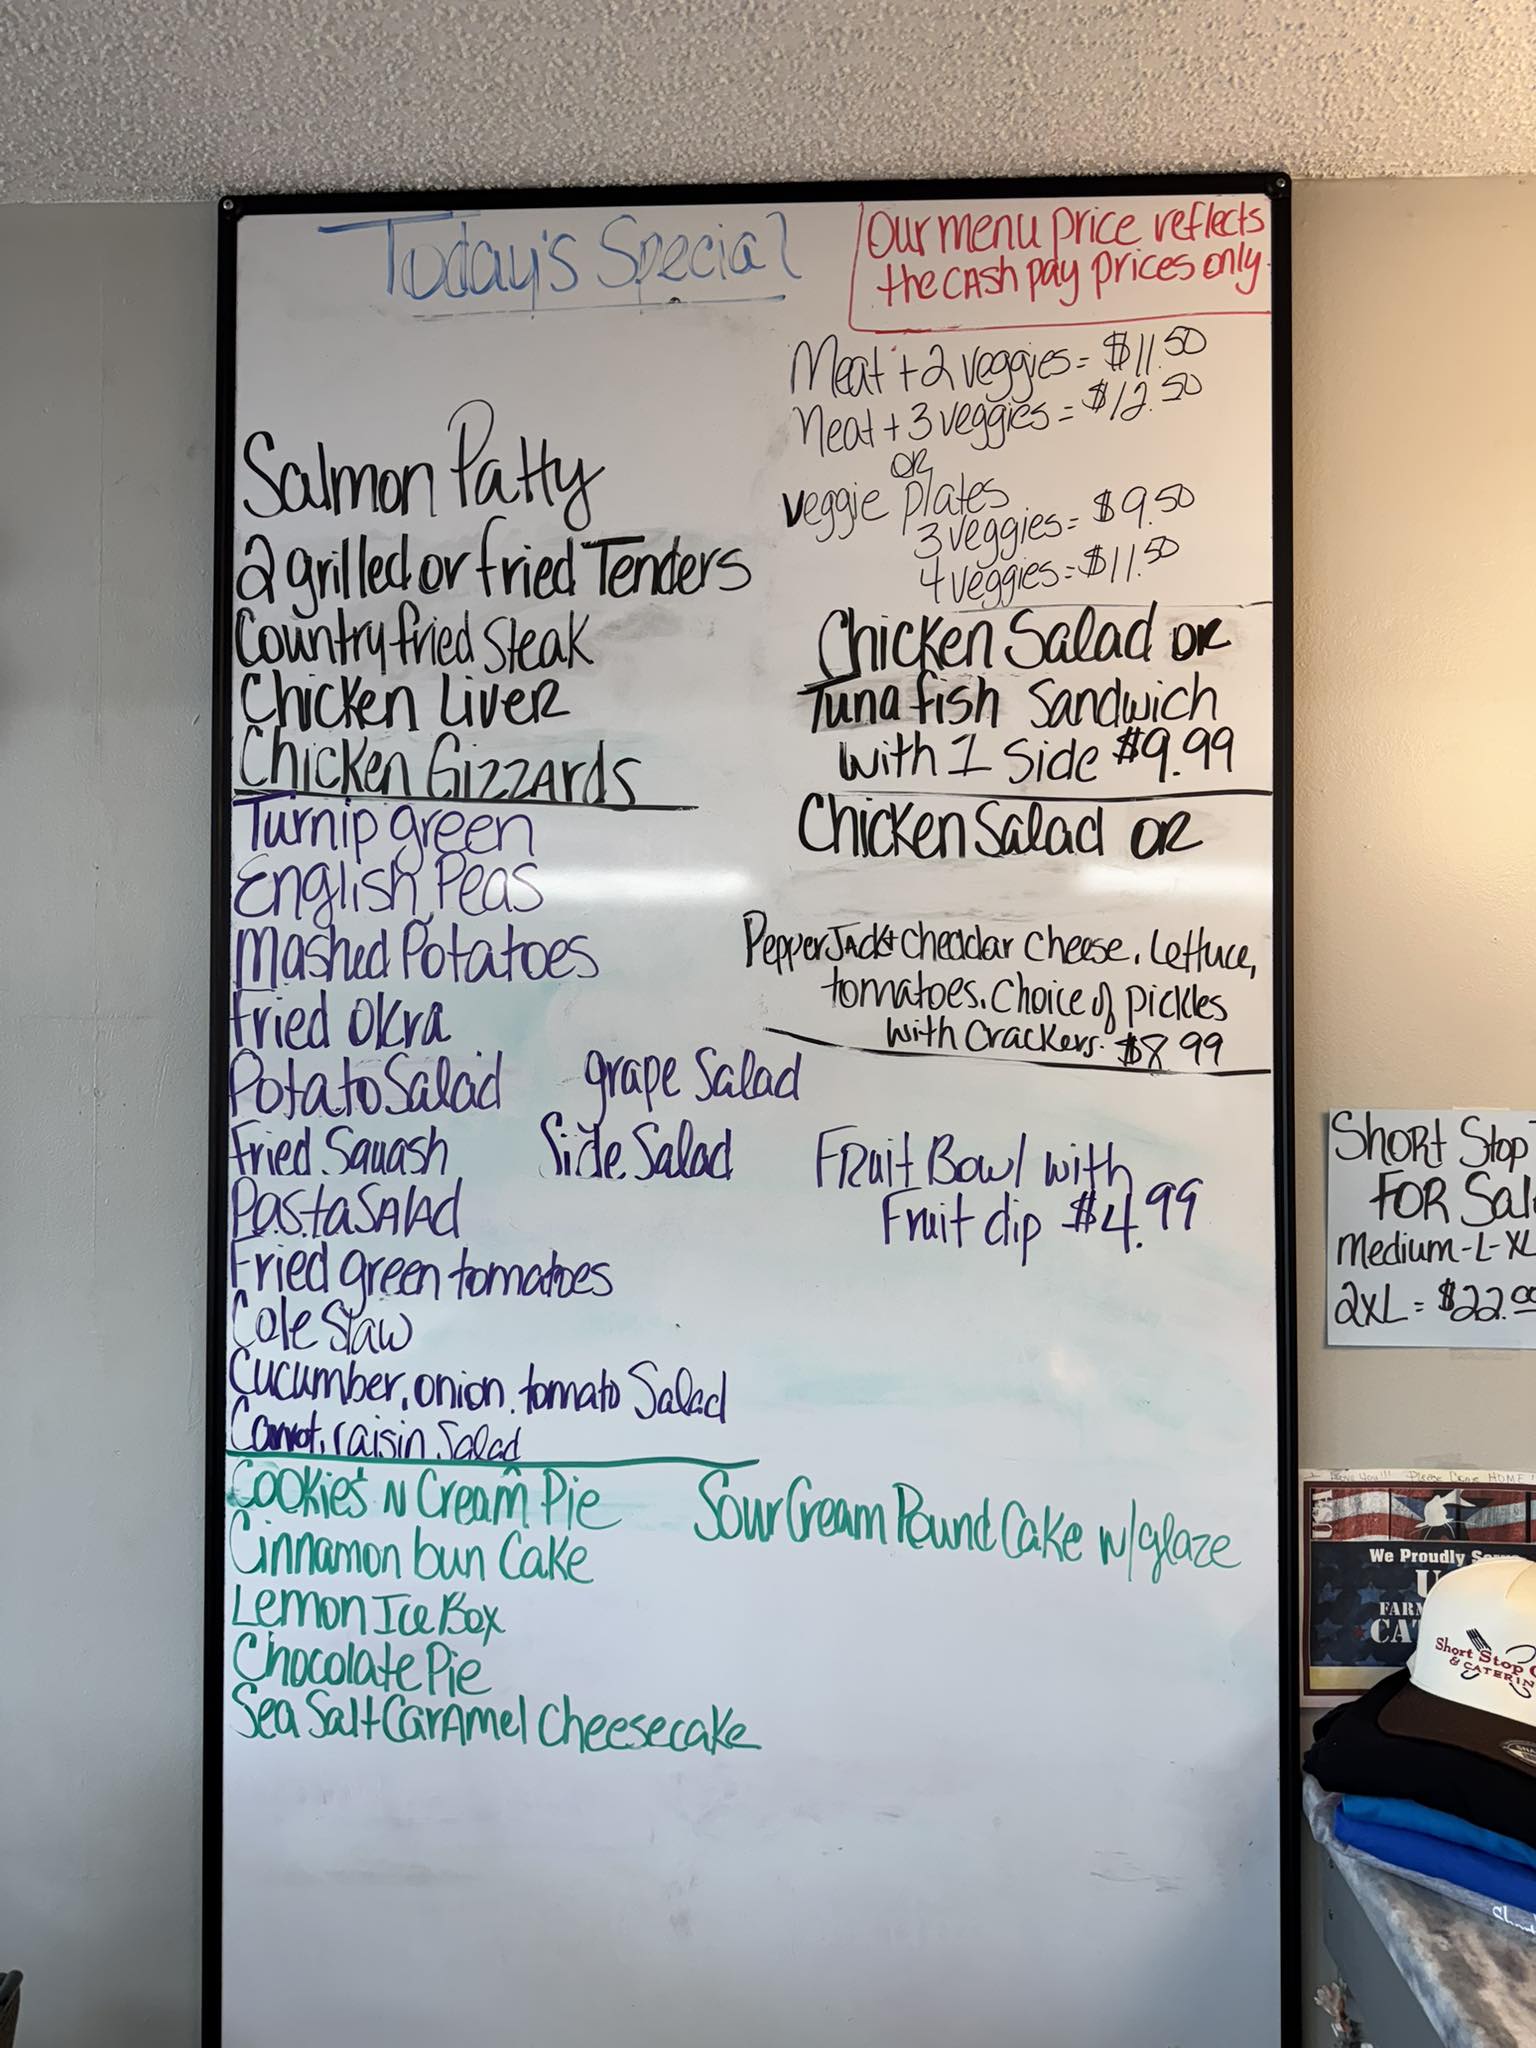 Today's Special
Our menu price reflects
the cash pay prices only.
Meat + 2 veggies = $11.50
Meat + 3 veggies = $12.50
OR
veggie plates
3 veggies = $9.50
4 veggies = $11.50
Salmon Patty
2 grilled or fried Tenders
Country fried steak
Chicken Liver
Chicken Gizzards
Chicken Salad OR
Tuna fish Sandwich
with 1 Side $9.99
Chicken Salad OR
Pepper Jack + cheddar cheese, Lettuce,
tomatoes, choice of pickles
with crackers. $8.99
Turnip green
English Peas
Mashed Potatoes
Fried Okra
Potato Salad
Fried Squash
Pasta Salad
Fried green tomatoes
Cole Slaw
Cucumber, onion, tomato Salad
Carrot, raisin Salad
grape Salad
Side Salad
Fruit Bowl with
Fruit dip $4.99
Cookies N Cream Pie
Cinnamon bun Cake
Lemon Ice Box
Chocolate Pie
Sea Salt Caramel Cheesecake
Sour Cream Pound Cake w/glaze
Short Stop
FOR Sal
Medium-L-XL
2XL = $22.00
Please Come HOME!
USA
We Proudly
U
FARM
CAT
Short Stop
& CATERIN